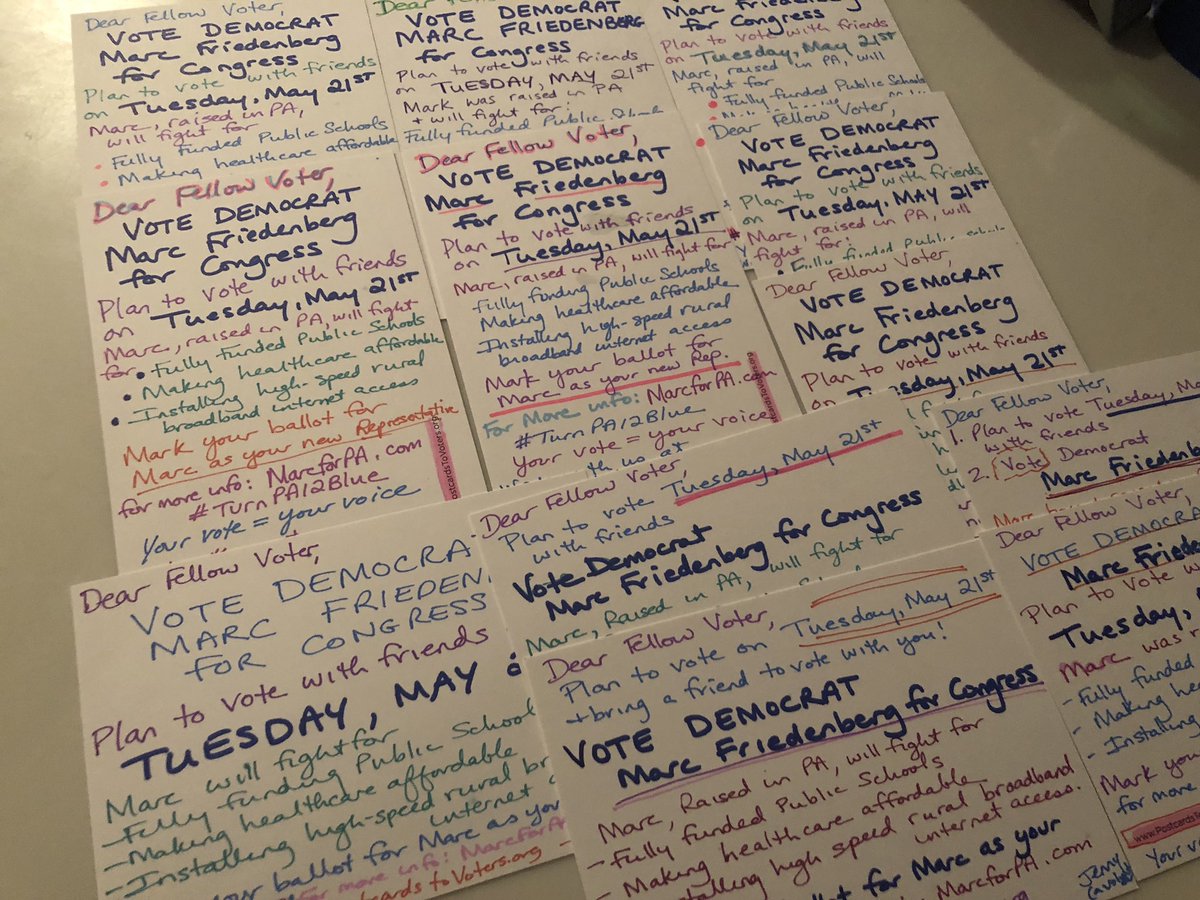 Dear Fellow Voter,
VOTE DEMOCRAT
Marc Friedenberg
for Congress
Plan to vote with friends
on Tuesday, May 21ST
Marc, raised in PA,
will fight for
• Fully funded Public Schools
• Making healthcare affordable
Dear
VOTE DEMOCRAT
MARC FRIEDENBERG
for Congress
Plan to vote with friends
on TUESDAY, MAY 21ST
Mark was raised in PA
+ will fight for:
Fully funded Public
Marc Friedenberg
for Congress
Plan to vote with friends
on Tuesday, May 21ST
Marc, raised in PA, will
fight for
• Fully funded Public Schools
Dear Fellow Voter,
VOTE DEMOCRAT
Marc Friedenberg
for Congress
Plan to vote with friends
on Tuesday, May 21ST
Marc, raised in PA, will fight
for • Fully funded Public Schools
• Making healthcare affordable
• Installing high-speed rural
broadband internet access
Mark your ballot for
Marc as your new Representative
for more info: MarcforPA.com
#TurnPA12Blue
Your vote = your voice
Dear Fellow Voter,
VOTE DEMOCRAT
Marc Friedenberg
for Congress
Plan to vote with friends
on Tuesday, May 21ST
Marc, raised in PA, will fight for
Fully funding Public Schools
Making healthcare affordable
Installing high-speed rural
broadband internet access
Mark your ballot for
Marc as your new Rep.
For More info: MarcforPA.com
#TurnPA12Blue
Your vote = your voice
with us at
Dear Fellow Voter,
VOTE DEMOCRAT
Marc Friedenberg
for Congress
Plan to vote with friends
on Tuesday, MAY 21ST
Marc, raised in PA, will
fight for:
• Fully funded Public
Dear Fellow Voter,
VOTE DEMOCRAT
Marc Friedenberg
for Congress
Plan to vote with friends
on Tuesday, May 21ST
Dear Fellow Voter,
1. Plan to vote Tuesday,
with friends
2. Vote Democrat
Marc
Dear Fellow Voter,
Plan to vote Tuesday, May 21ST
with friends
Vote Democrat
Marc Friedenberg for Congress
Marc, Raised in PA, will fight for
Dear Fellow Voter,
VOTE
MARC
FOR CONGRESS
Plan to vote with friends
TUESDAY, MAY
Marc will fight for
- Fully funding Public School
- Making healthcare affordable
- Installing high-speed rural
internet
ballot for Marc as you
for more info:
cards to Voters.org
Dear Fellow Voter,
Plan to vote on Tuesday, May 21ST
+ bring a friend to vote with you!
VOTE DEMOCRAT
Marc Friedenberg for Congress
Marc, Raised in PA, will fight for
- Fully funded Public Schools
- Making healthcare affordable
- Installing high speed rural broadband
internet access.
for Marc as your
MarcforPA.com
Dear Fellow Voter,
VOTE DEMOCRAT
Marc
Plan to vote
Tuesday,
Marc was
- Fully funded
- Making
- Installing
Mark
for more
Your